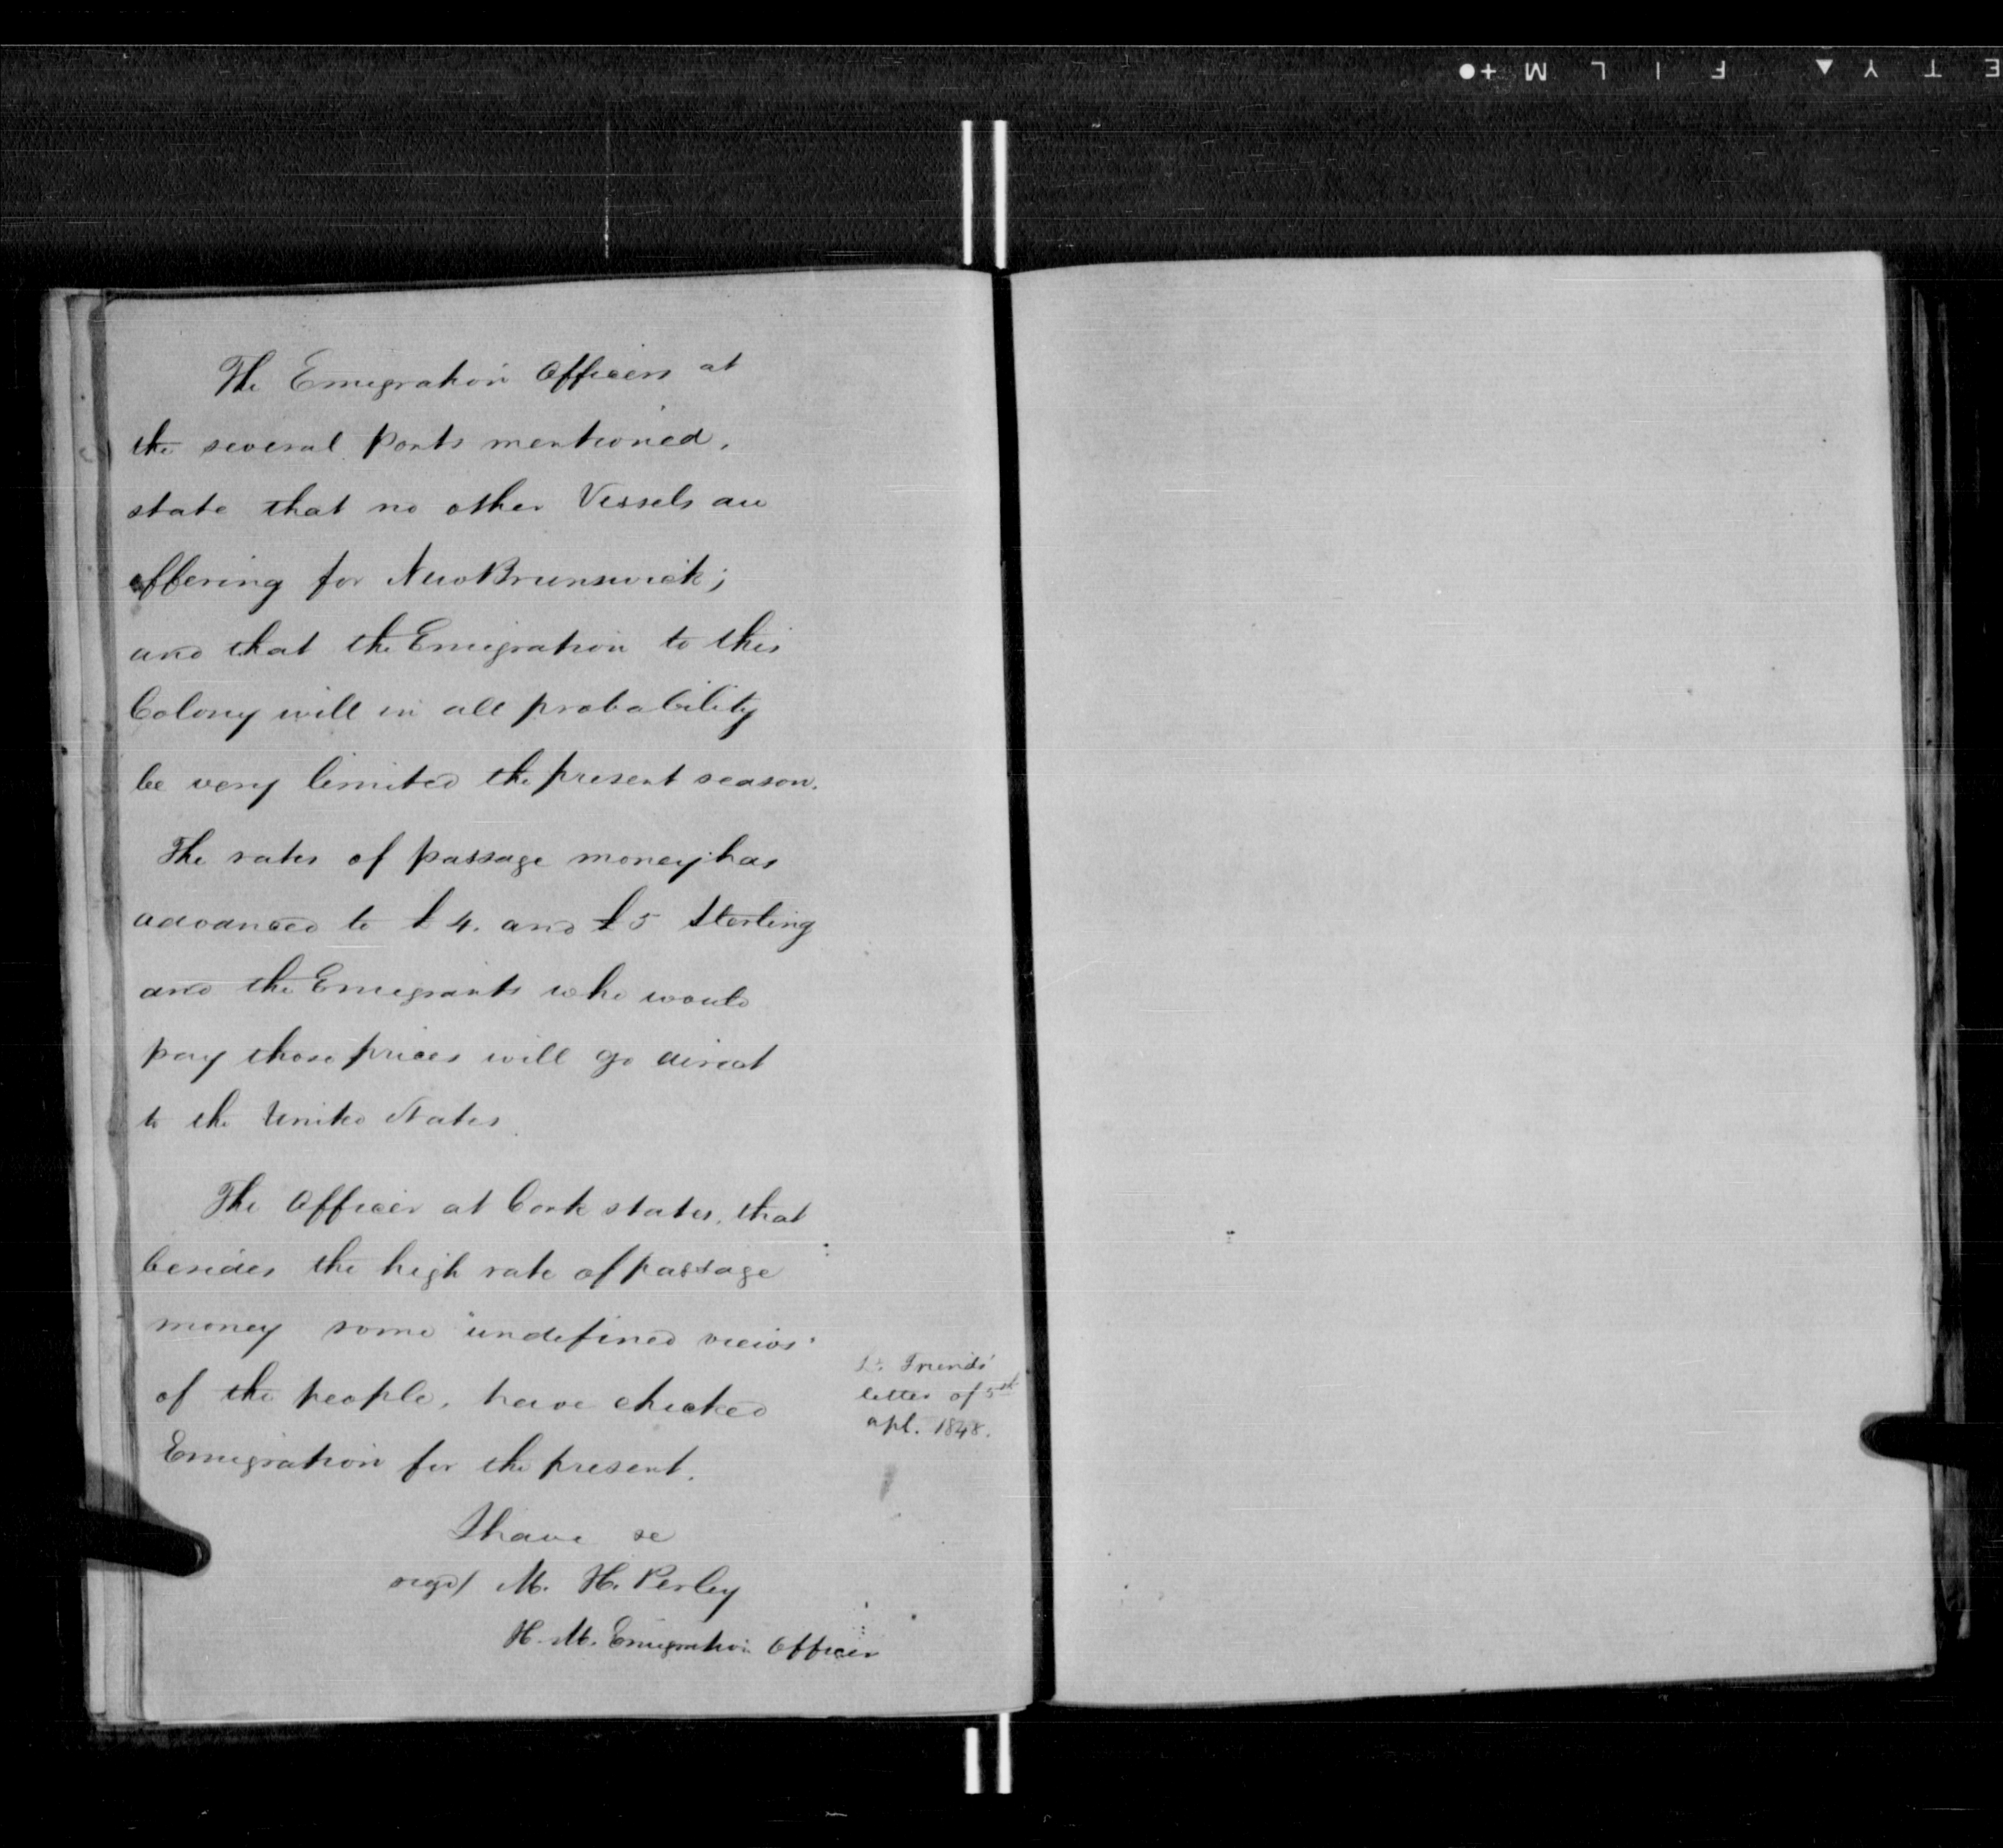 The Emigration Officers at
the several ports mentioned,
state that no other Vessels are
offering for New Brunswick;
and that the Emigration to this
Colony will in all probability
be very limited the present season.
The rates of passage money has
advanced to £4. and £5 Sterling
and the Emigrants who would
pay those prices will go direct
to the United States.
The Officer at Cork states, that
besides the high rate of passage
money some "undefined views"
of the people, have checked
Emigration for the present.
Lt. Friends'
letter of 5th
apl. 1848.
I have &c
sigd/ M. H. Perley
H. M. Emigration Officer
E T Y ▲ F I L M +●